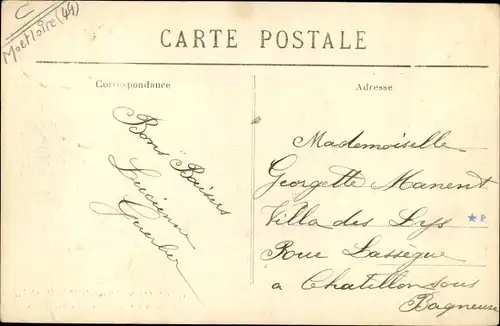 C
M et Loire (49)
CARTE POSTALE
Correspondance
Adresse
Bons Baisers
Lucienne
Mademoiselle
Georgette Manent
Villa des Lys
Rue Lassègue
a Chatillon sous
Bagneux